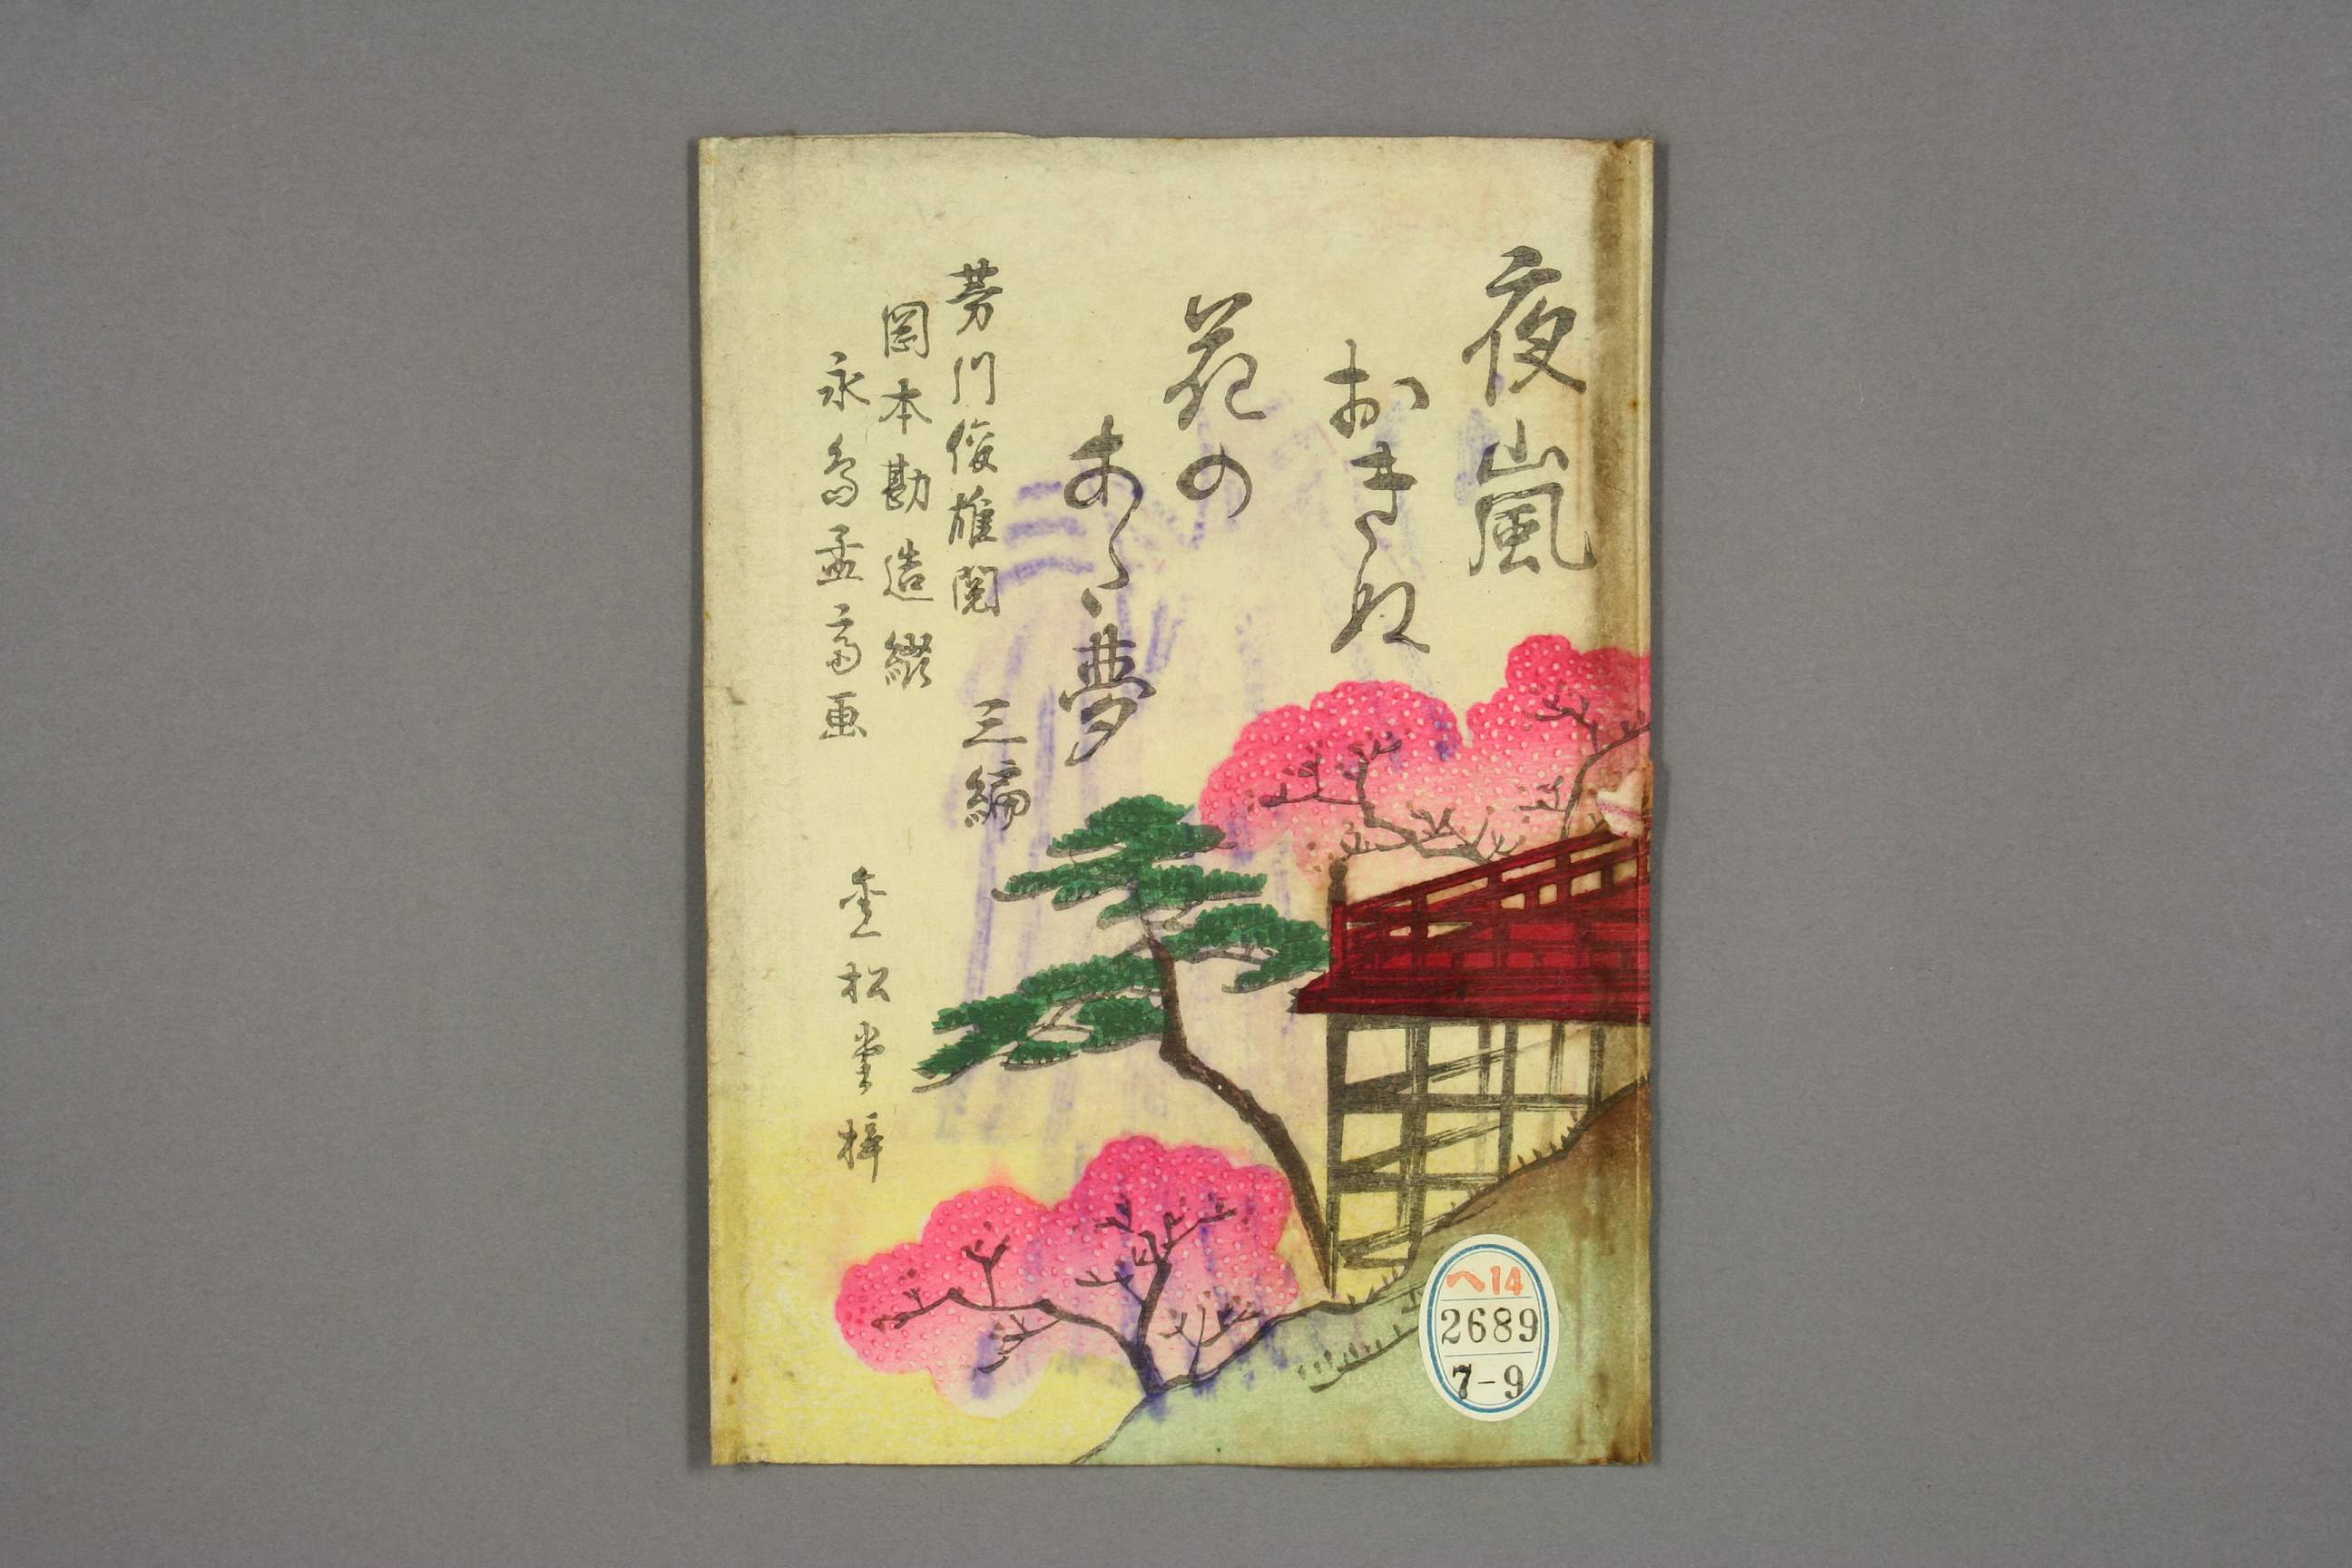 夜嵐
おきぬ
花の
あだ夢
三編
芳川俊雄閲
岡本勘造綴
永島孟斎画
金松堂梓
ヘ14
2689
7-9